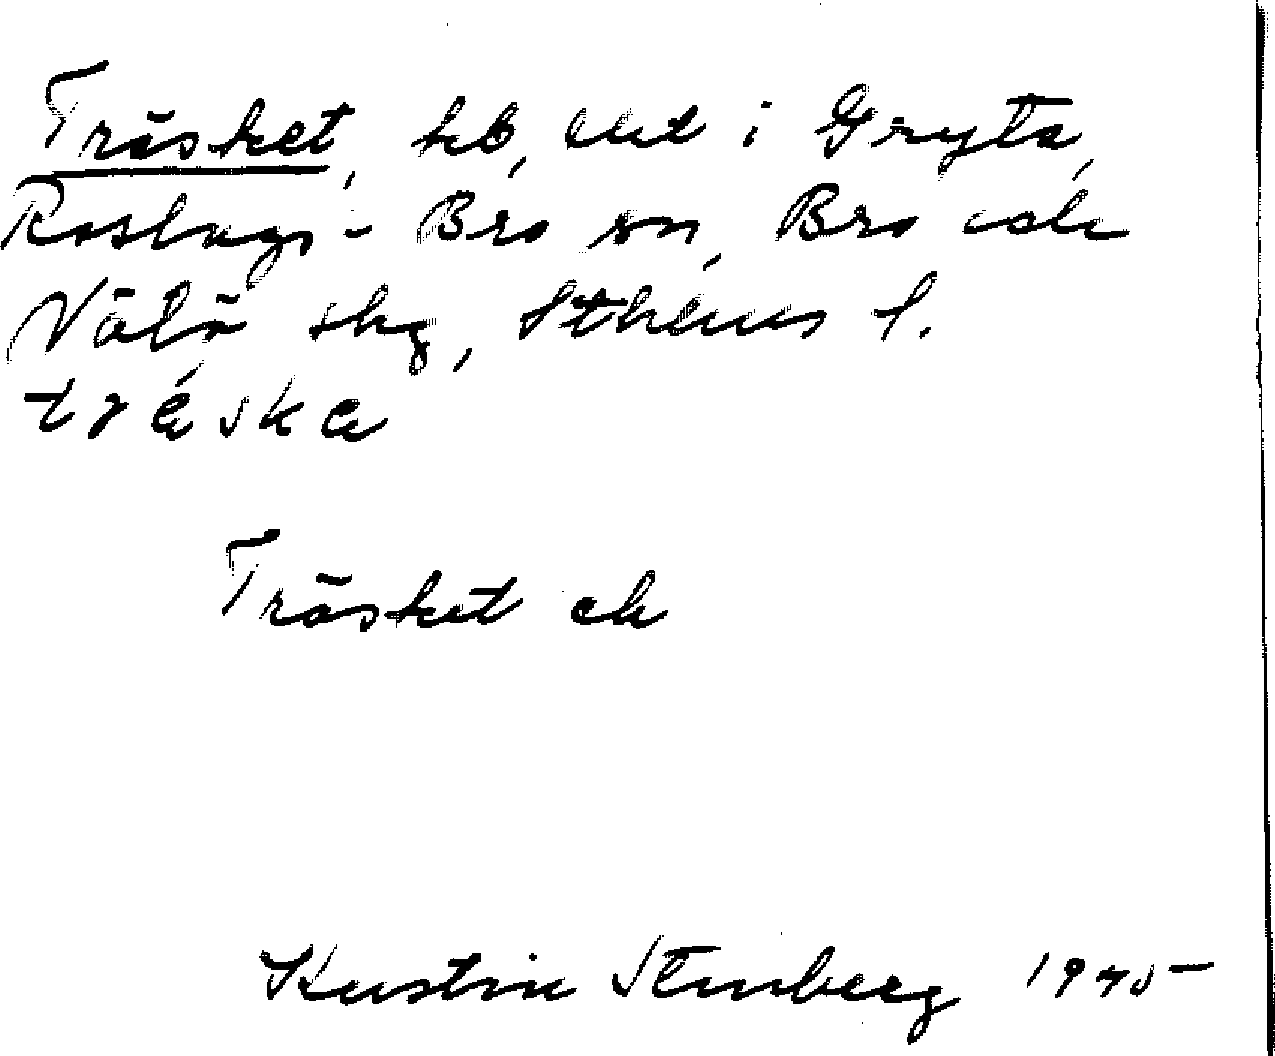 Träsket, hb, utt i Gryta,
Roslags-Bro sn, Bro och
Vätö skg, Sthlms l.
träska
Träsket ek
Kerstin Stenberg 1945